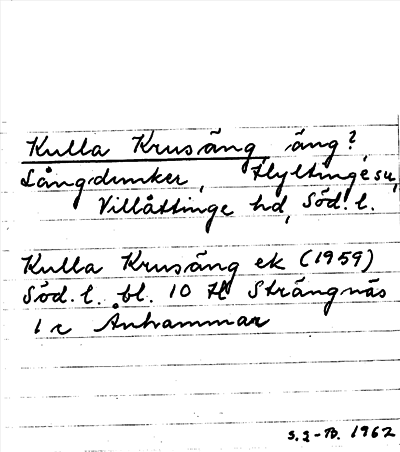 Kulla Krusäng, äng?,
Långdunker, Hyltinge su,
Villåttinge hd, Söd. l.
Kulla Krusäng ek (1959)
Söd. l. bl. 10 Strängnäs
Ånhammar
1962